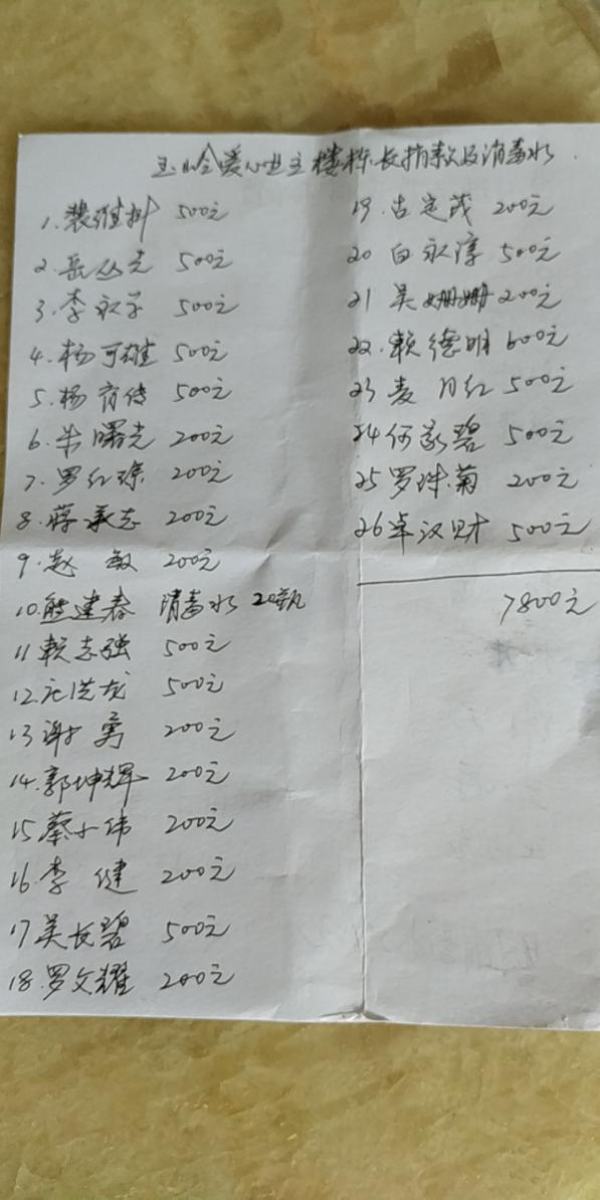 玉岭爱心业主楼栋长捐款及消毒水
1.裴维科 500元
2.岳丛光 500元
3.李永平 500元
4.杨可雄 500元
5.杨育传 500元
6.朱曙光 200元
7.罗红琼 200元
8.蒋承志 200元
9.赵敏 200元
10.熊建春 消毒水 20瓶
11赖志强 500元
12.洪龙 500元
13谢勇 200元
14.郭坤辉 200元
15蔡小伟 200元
16.李健 200元
17吴长碧 500元
18.罗文耀 200元
19.古定茂 200元
20 白永淳 500元
21 吴姗姗 200元
22.赖德明 600元
23麦月红 500元
24何家碧 500元
25罗珠菊 200元
26卓汉财 500元
7800元